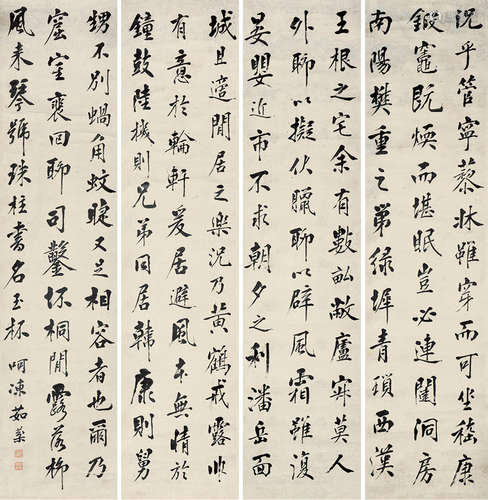 況乎管寧藜牀雖穿而可坐嵇康
鍛竈既煗而堪眠豈必連闥洞房
南陽樊重之第綠墀青瑣西漢
王根之宅余有數畝敝廬寂莫人
外聊以擬伏臘聊以辟風霜雖復
晏嬰近市不求朝夕之利潘岳面
城且適閒居之樂況乃黃鶴戒露非
有意於輪軒爰居避風本無情於
鐘鼓陸機則兄弟同居韓康則舅
甥不別蝸角蚊睫又足相容者也爾乃
窟室裵回聊司鑿坏桐間露落柳
風來琴號珠柱書名玉杯 呵凍茹棻